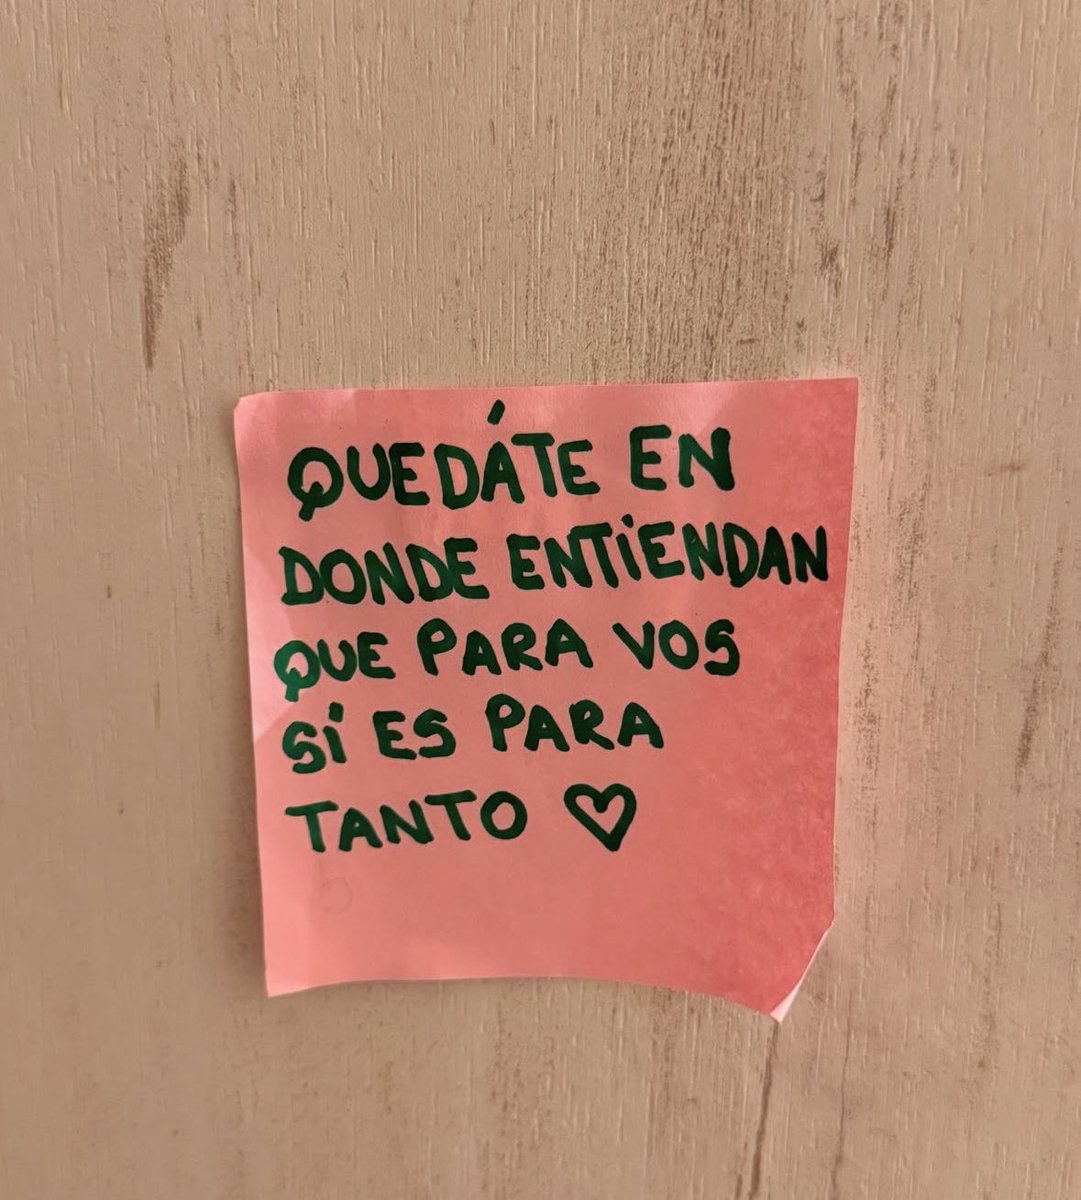 QUEDÁTE EN
DONDE ENTiENDAN
QUE PARA VOS
Sí ES PARA
TANTO ♡